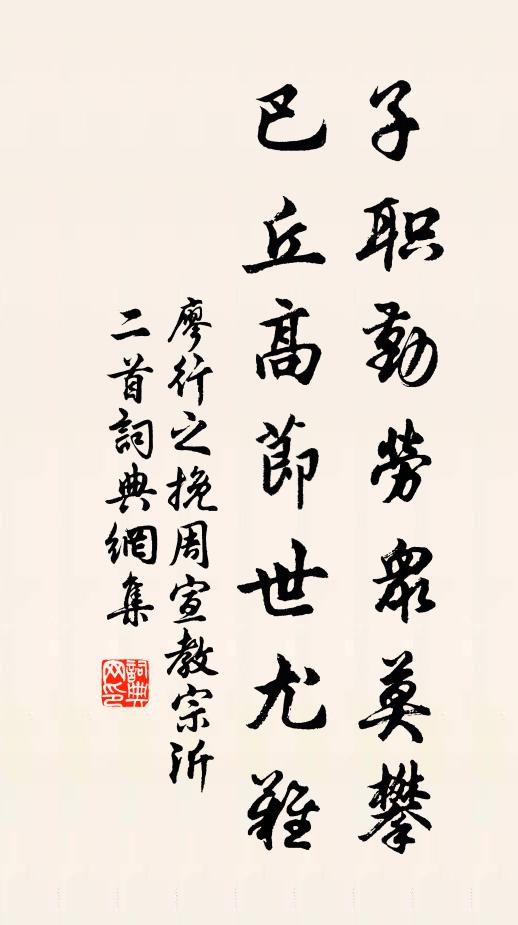 子职勤勞衆莫攀
巴丘高節世尤難
廖行之挽周宣教宗沂
二首詞典網集
詞典网印